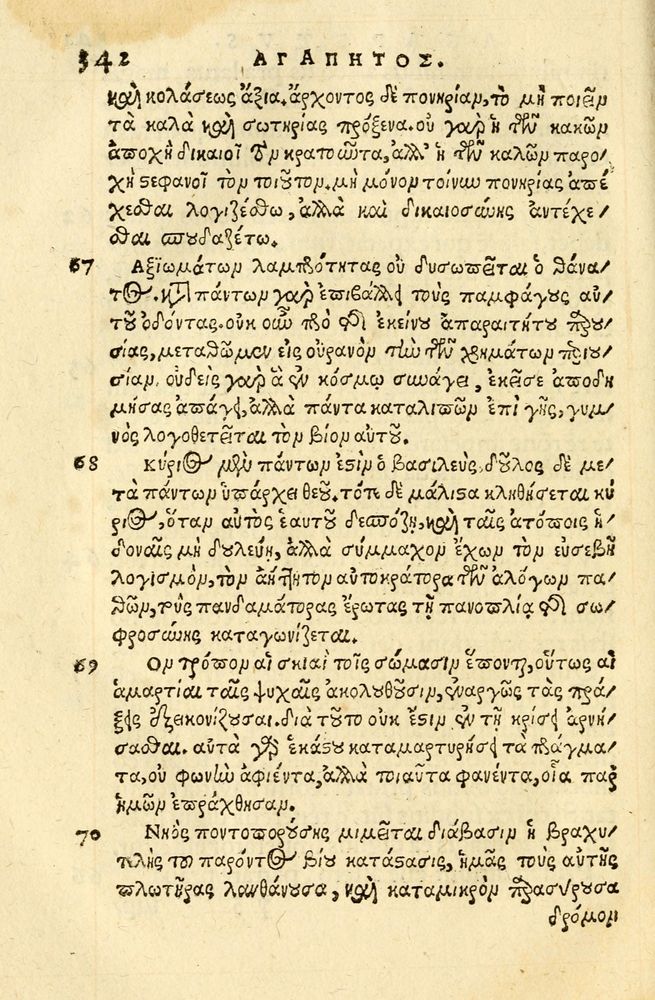 342 ΑΓΑΠΗΤΟΣ.
καὶ κολάσεως ἄξια. ἄρχοντος δὲ πονηρίαν, τὸ μὴ ποιεῖν
τὰ καλὰ καὶ σωτηρίας πρόξενα. οὐ γὰρ ἡ τῶν κακῶν
ἀποχὴ δικαιοῖ τὸν κρατοῦντα, ἀλλ' ἡ τῶν καλῶν παρο-
χὴ στεφανοῖ τὸν τοιοῦτον. μὴ μόνον τοίνυν πονηρίας ἀπέ
χεσθαι λογιζέσθω, ἀλλὰ καὶ δικαιοσύνης ἀντέχε-
σθαι σπουδαζέτω.
67 Αξιωμάτων λαμπρότητας οὐ δυσωπεῖται ὁ θάνα-
τος. κατὰ πάντων γὰρ ἐπιβάλλει τοὺς παμφάγους αὐ-
τοῦ ὀδόντας. οὐκοῦν πρὸ τῆς ἐκείνου ἀπαραιτήτου παρου-
σίας, μεταθῶμεν εἰς οὐρανὸν τὴν τῶν χρημάτων περιου-
σίαν. οὐδεὶς γὰρ ἃ ἐν κόσμῳ συνάγει, ἐκεῖσε ἀποδη
μήσας ἀπάγει, ἀλλὰ πάντα καταλιπὼν ἐπὶ γῆς, γυμ-
νὸς λογοθετεῖται τὸν βίον αὐτοῦ.
68 Κύριος μὲν πάντων ἐστὶν ὁ βασιλεύς, δοῦλος δὲ με-
τὰ πάντων ὑπάρχει θεοῦ. τότε δὲ μάλιστα κληθήσεται κύ
ριος, ὅταν αὐτὸς ἑαυτοῦ δεσπόζῃ, καὶ ταῖς ἀτόποις ἡ-
δοναῖς μὴ δουλεύῃ, ἀλλὰ σύμμαχον ἔχων τὸν εὐσεβῆ
λογισμὸν, τὸν ἀήττητον αὐτοκράτορα τῶν ἀλόγων πα-
θῶν, τοὺς πανδαμάτορας ἔρωτας τῇ πανοπλίᾳ τῆς σω-
φροσύνης καταγωνίζεται.
69 Ον τρόπον αἱ σκιαὶ τοῖς σώμασιν ἕπονται, οὕτως αἱ
ἁμαρτίαι ταῖς ψυχαῖς ἀκολουθοῦσιν, ἐναργῶς τὰς πρά-
ξεις ἐξεικονίζουσαι. διὰ τοῦτο οὐκ ἔστιν ἐν τῇ κρίσει ἀρνή-
σασθαι. αὐτὰ γὰρ ἑκάστου καταμαρτυρήσει τὰ πράγμα-
τα, οὐ φωνὴν ἀφιέντα, ἀλλὰ τοιαῦτα φανέντα, οἷα παρ'
ἡμῶν ἐπράχθησαν.
70 Νηὸς ποντοπορούσης μιμεῖται διάβασιν ἡ βραχυ-
τελὴς τοῦ παρόντος βίου κατάστασις, ἡμᾶς τοὺς αὐτῆς
πλωτῆρας λανθάνουσα, καὶ καταμικρὸν παρασύρουσα
δρόμον